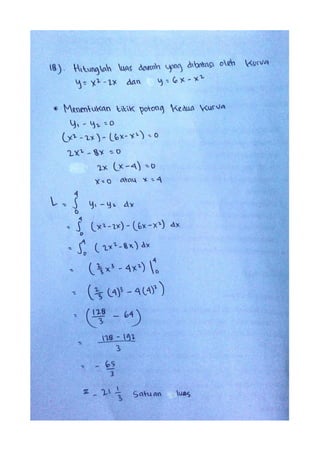 18). Hitunglah luas daerah yang dibatasi oleh kurva
y = x² - 2x dan y = 6x - x²
* Menentukan titik potong kedua kurva
y₁ - y₂ = 0
(x² - 2x) - (6x - x²) = 0
2x² - 8x = 0
2x (x - 4) = 0
x = 0 atau x = 4
L = ∫₀⁴ y₁ - y₂ dx
= ∫₀⁴ (x² - 2x) - (6x - x²) dx
= ∫₀⁴ (2x² - 8x) dx
= (2/3 x³ - 4x²) |₀⁴
= (2/3 (4)³ - 4(4)²)
= (128/3 - 64)
= 128 - 192 / 3
= - 65/3
= - 21 1/3 Satuan luas